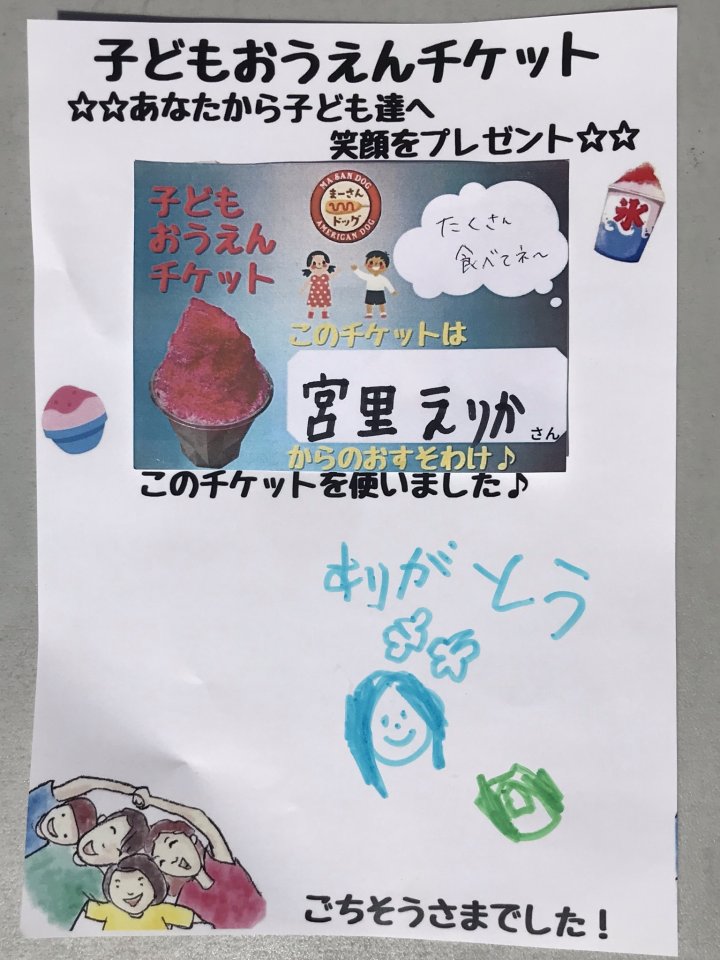 子どもおうえんチケット
☆☆あなたから子ども達へ
笑顔をプレゼント☆☆
氷
子ども
おうえん
チケット
MA SAN DOG
まーさん
ドッグ
AMERICAN DOG
たくさん
食べてネ〜
このチケットは
宮里 えりか さん
からのおすそわけ♪
このチケットを使いました♪
ありがとう
ごちそうさまでした！